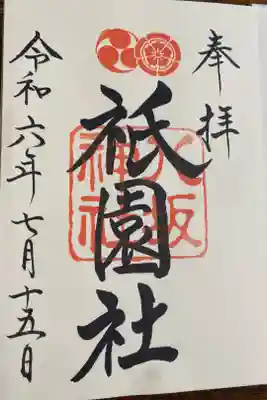 奉拝
八坂
神社
祇園社
令和六年七月十五日